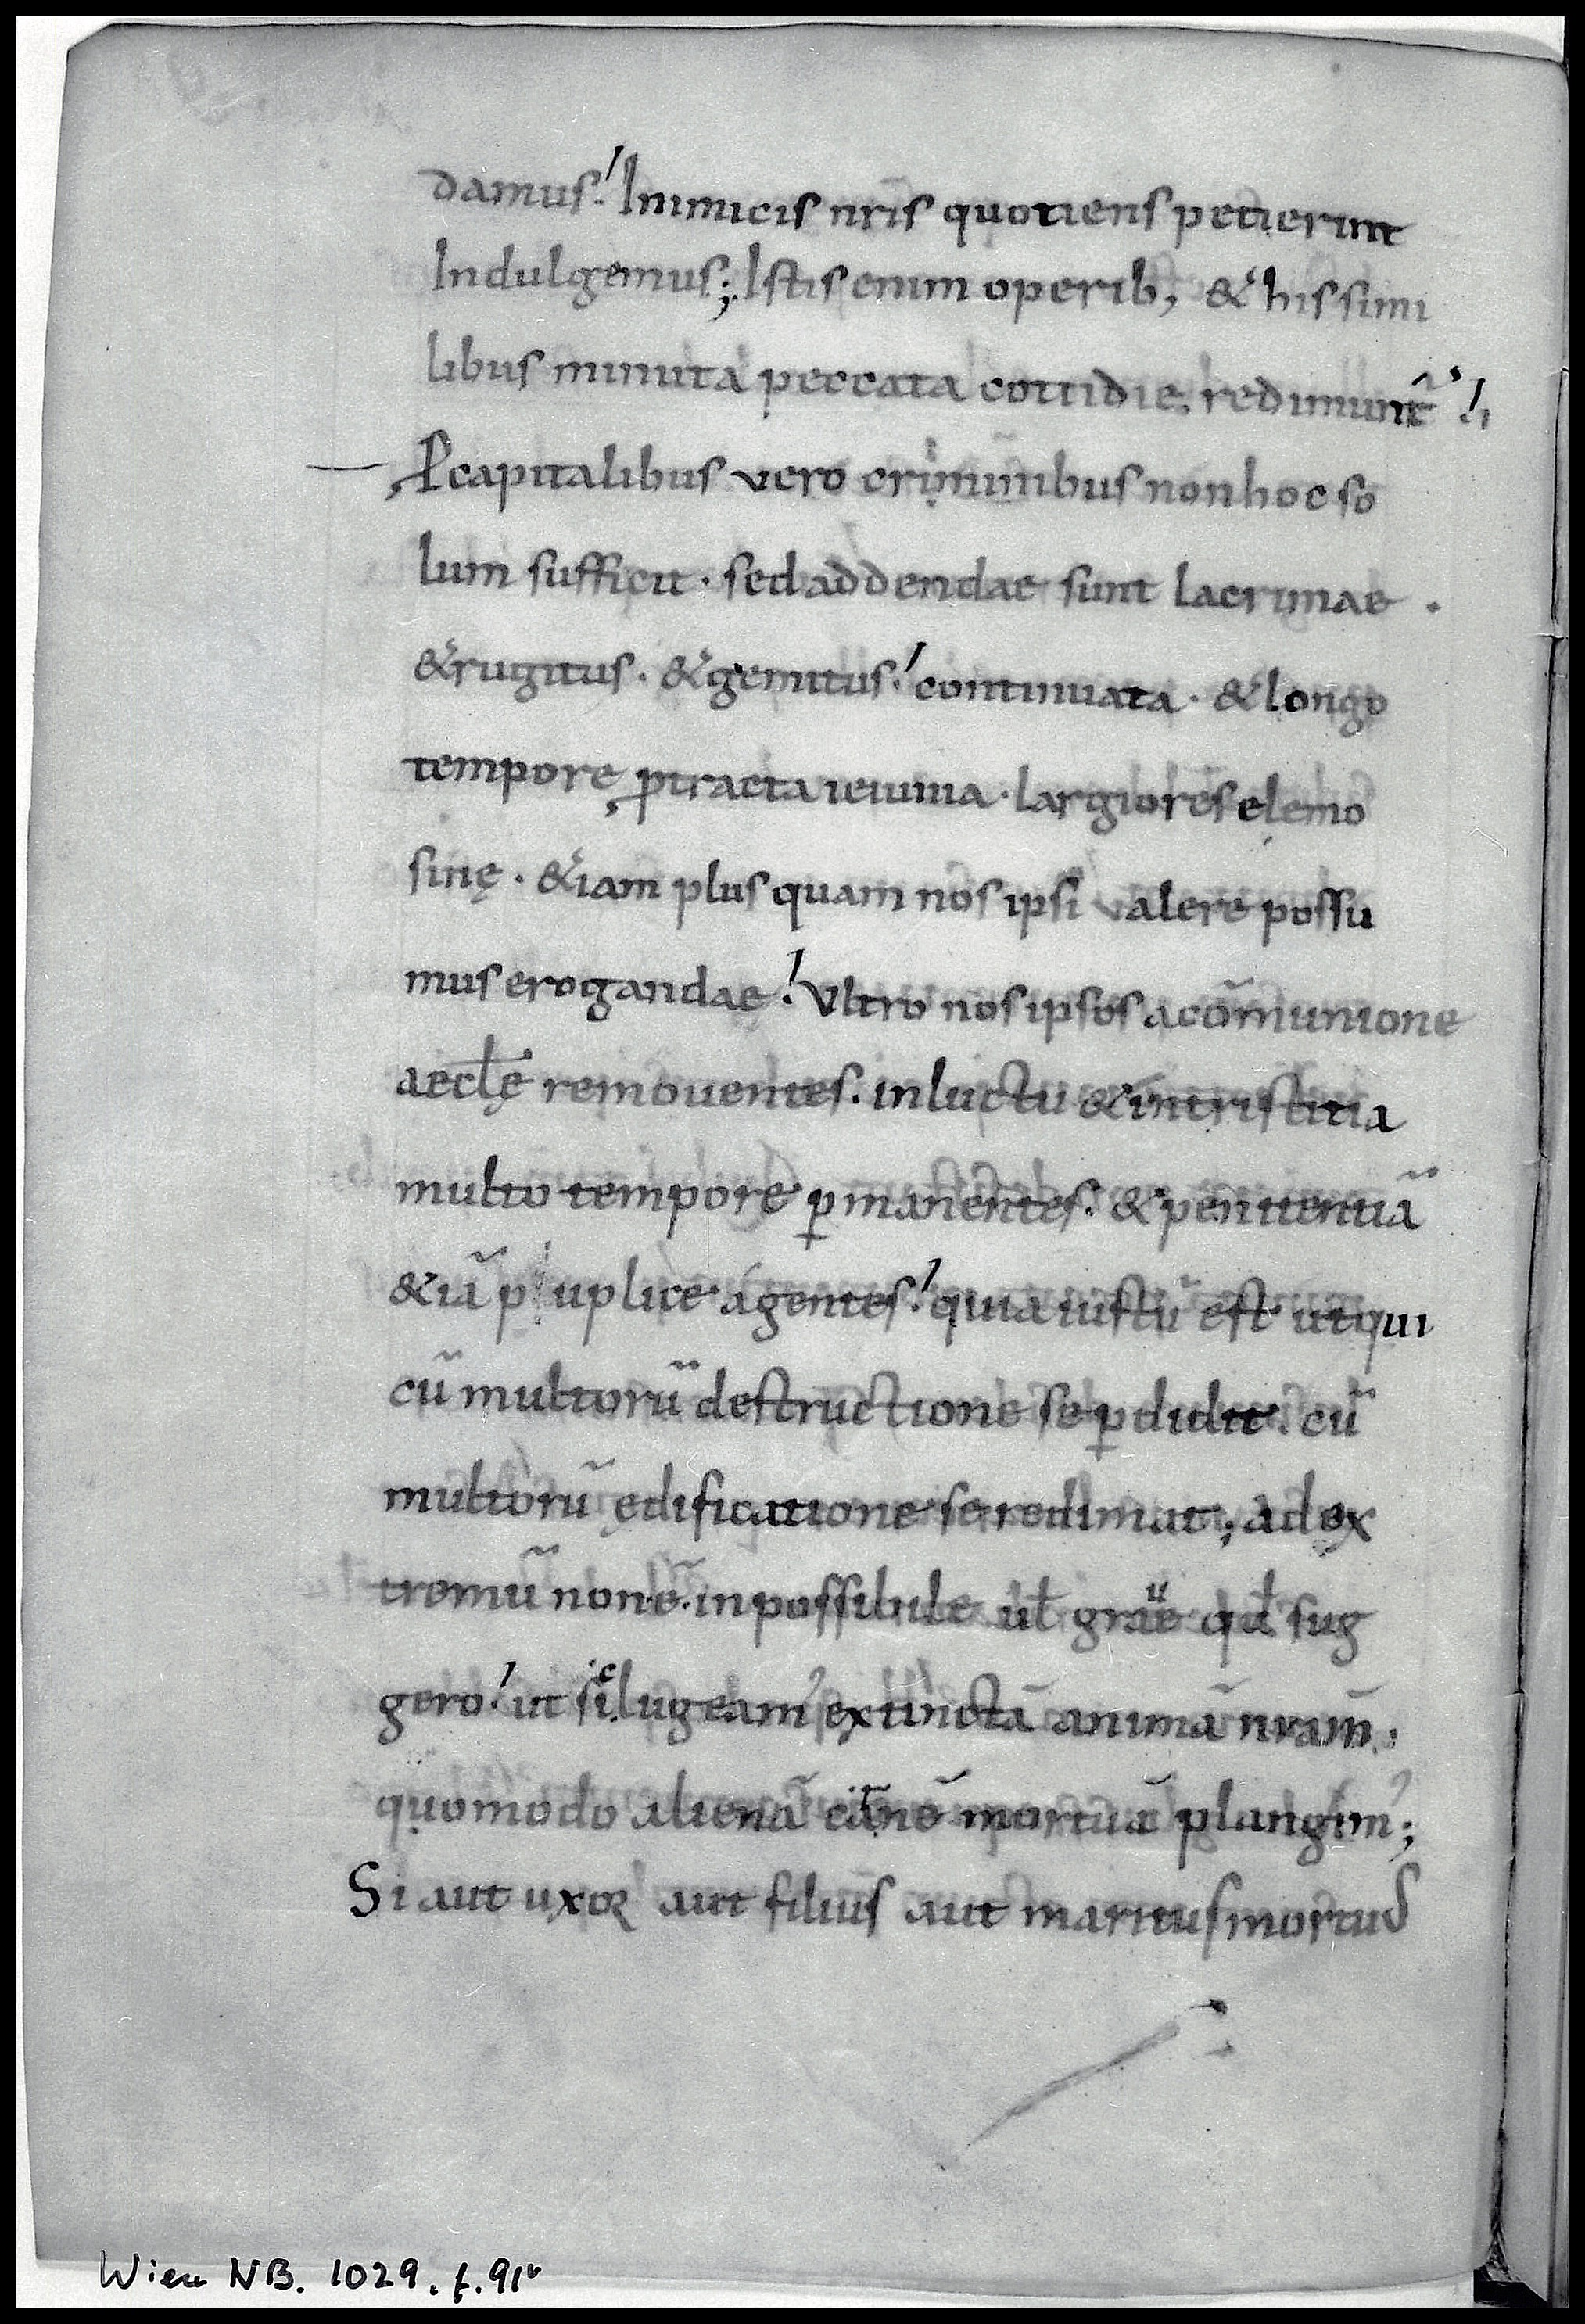 damus! Inimicis nr̄is quotiens petierint
Indulgemus; Istis enim operib; & his simi
libus minuta peccata cottidie redimunt̃!
P capitalibus vero criminibus non hoc so
lum sufficit · sed addendae sunt lacrimae ·
& rugitus · & gemitus! continuata · & longo
tempore ꝓtracta ieiunia · largiores elemo
sinę · &iam plus quam nos ipsi valere possu
mus erogandae! Vltro nos ipsos a com̄unione
aecl̄ę remouentes. in luctu & in tristitia
multo tempore ꝑmanentes. & penitentiā
&iā puplice agentes! quia iustū est ut qui
cū multorū destructione se ꝑdidit. cū
multorū ędificatione se redimat; ad ex
tremū non ē. inpossibile ul̄ graue qd̄ sug
gero! ut sic lugeam' extinctā animā nrām.
quomodo alienā carnē mortuā plangim';
Si aut uxor aut filius aut maritus mortuus
Wien NB. 1029. f. 91v